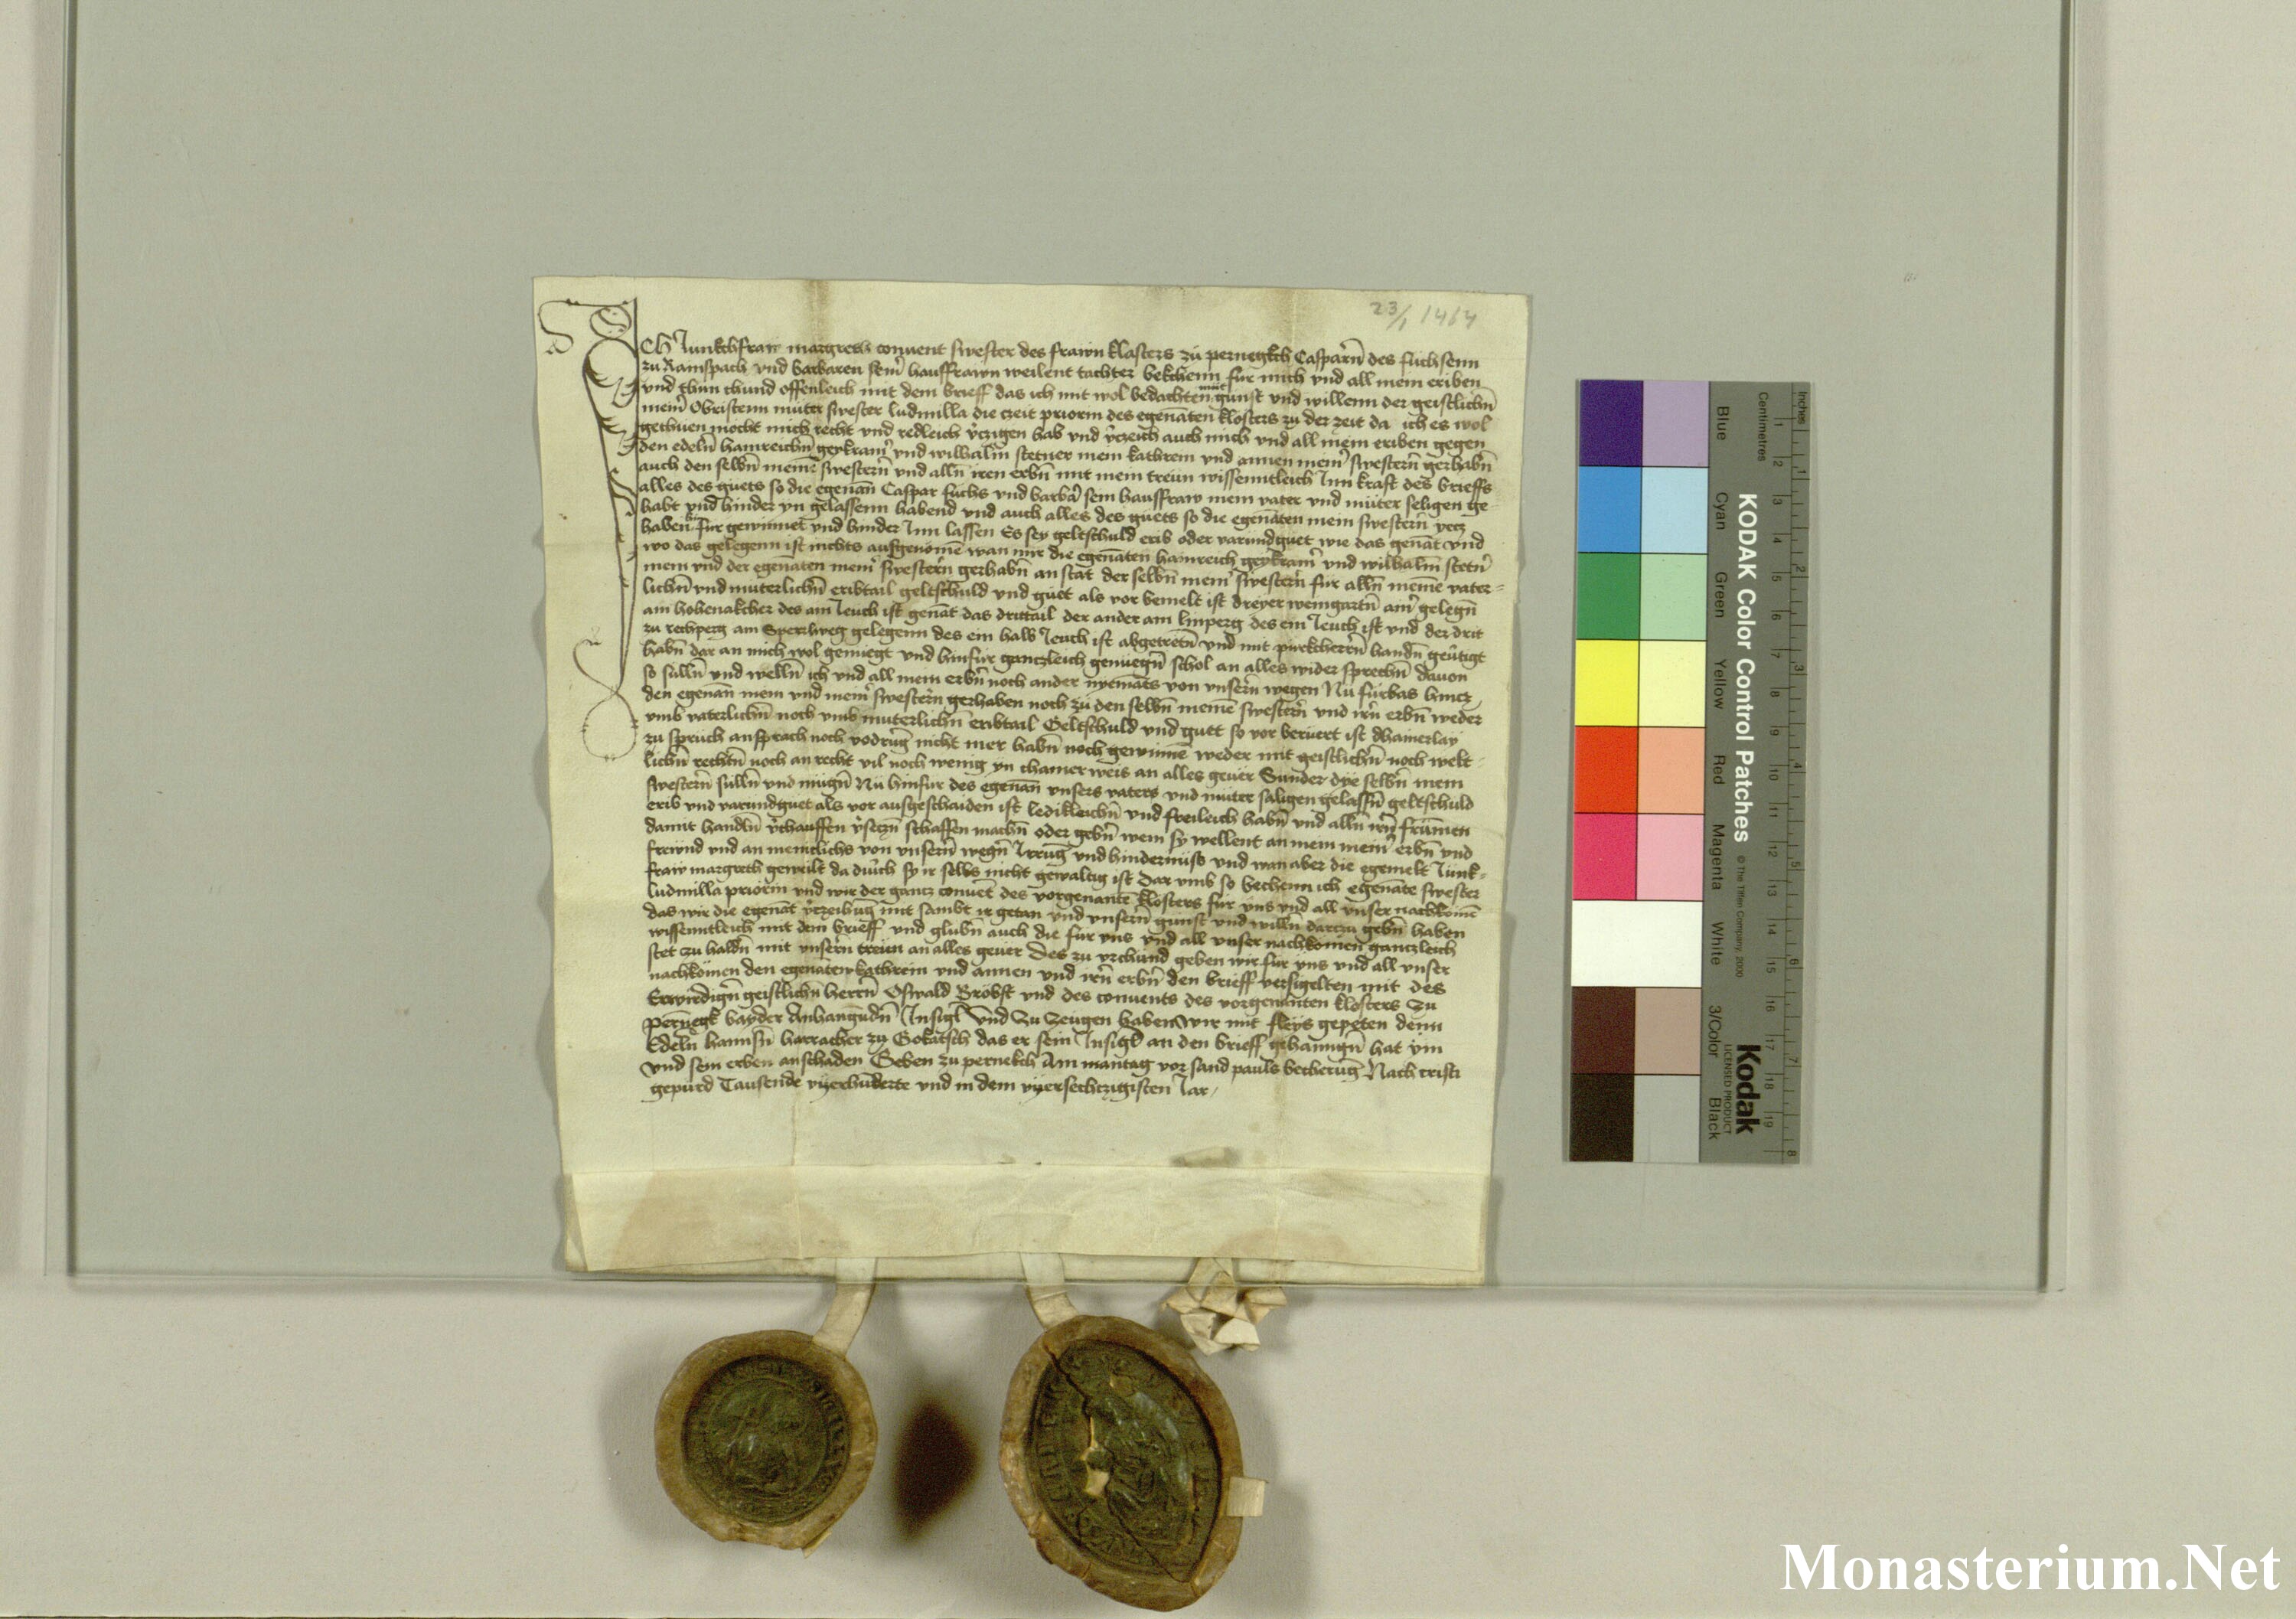 23/1 1464
Ich Junkchfraw margreth conuent swester des frawn klasters zu pernegkch Casparn des fuchsenn
zu Ramspach vnd barbaren seinr hausfrawn weilent tachter bekchenn fur mich vnd all mein eriben
vnd thun chund offenleich mit dem brieff das ich mit wol bedachten mut gunst vnd willenn der geistlichn
meinr Obristenn muter swester ludmilla die czeit priorin des egenāten klosters zu der zeit da ich es wol
gethuen mocht mich recht vnd redleich vczigen hab vnd vczeich auch mich vnd all mein eriben gegen
den edeln hainreichn geykramr vnd wilhalm stetner mein kathrein vnd annen meinr swestern gerhabn
auch den selbn meinē swestern vnd alln iren erbn mit mein treun wissenntleich Inn kraft des brieffs
alles des guets so die egenan Caspar fuchs vnd barbara sein hausfraw mein vater vnd muter seligen ge-
habt vnd hinder yn gelassenn habend vnd auch alles des guets so die egenāten mein swestern yecz
haben fur gewinnet vnd hinder Inn lassen Es sey geltschuld erib oder varundguet wie das genāt vnd
wo das gelegenn ist nichts ausgenomē wan mir die egenāten hainreich geykramr vnd wilhalm stetnr
mein vnd der egenāten meinr swestern gerhabn an stat der selbn meinr swestern fur alln meinē vater-
lichn vnd muterlichn eribtail geltschuld vnd guet als vor bemelt ist dreyer weingartn ainr gelegn
am hohenakcher des ain Jeuch ist genāt das drittail der ander am linperg des ein Jeuch ist vnd der drit
zu rechperg am Sperlweg gelegenn des ein halb Jeuch ist abgetretn vnd mit purkcherrn handn geutigt
habn dar an mich wol genuegt vnd hinfur ganczleich genuegn schol an alles wider sprechn dauon
so sulln vnd welln ich vnd all mein erbn noch ander nyemāts von vnsern wegen Nu furbas hincz
den egenan mein vnd meinr swestern gerhaben noch zu den selbn meinē swestern vnd irn erbn weder
vmb vaterlichn noch vmb muterlichn eribtail Geltschuld vnd guet so vor beruert ist dhainerlay
zu spruch ansprach noch vodrug nicht mer habn noch gewinnē weder mit geistlichn noch welt-
lichn rechtn noch an recht vil noch wenig yn chainer weis an alles geuer Sunder dye selbn mein
swestern sulln vnd mugn Nu hinfur des egenan vnsers vaters vnd muter saligen gelassn geltschuld
erib vnd varundguet als vor ausgeschaiden ist ledikleichn vnd freileich habn vnd alln irn frumen
damit handln vchauffen vseczn schaffen machn oder gebn wem sy wellent an mein meinr erbn vnd
frewnd vnd an meniclichs von vnsern wegn Irrug vnd hindernuss vnd wan aber die egemelt Junk-
fraw margreth geweilt da durch sy ir selbs nicht gewaltig ist dar vmb so bechenn ich egenāte swester
ludmilla priorin vnd wir der gancz conuēt des vorgenantē klosters fur vns vnd all vnser nachkomē
das wir die egenāt vczeihug mit sambt ir getan vnd vnsern gunst vnd willn darczu gebn haben
wissenntleich mit dem brieff vnd glubn auch die fur vns vnd all vnser nachkomen ganczleich
stet zu haldn mit vnsern treun an alles geuer Des zu vrchund geben wir fur vns vnd all vnser
nachkomen den egenāten kathrein vnd annen vnd irn erbn den brieff versigelten mit des
Erwirdign geistlichn herrn Oswald Brobst vnd des conuents des vorgenanten klosters zu
pernegk bayder Anhangundn Insigl Vnd zu zeugen haben wir mit fleys gepeten denn
Edeln hannsn harracher zu Gokatsch das er sein Insigl an den brieff gehanngn hat ym
vnd sein erben anschaden Geben zu pernekch Am mantag vor sand pauls becherug Nach cristi
gepurd Tausende vyerhūderte vnd in dem vyersechczigisten Jar
KODAK Color Control Patches
© The Tiffen Company, 2000
Kodak
LICENSED PRODUCT
Inches
Centimetres
Blue
Cyan
Green
Yellow
Red
Magenta
White
3/Color
Black
Monasterium.Net